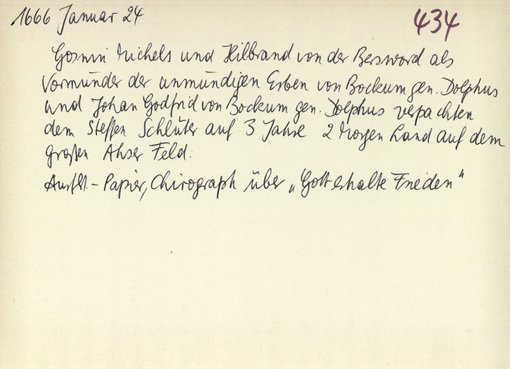 1666 Januar 24
434
Gosmin Michels und Hilbrand von der Berswordt als
Vormünder der unmündigen Erben von Bockum gen. Dolphus
und Johan Godfrid von Bockum gen. Dolphus verpachten
dem Steffen Schlüter auf 3 Jahre 2 Morgen Land auf dem
großen Ahser Feld.
Ausf. - Papier, Chirograph über "Gott erhalte Frieden"